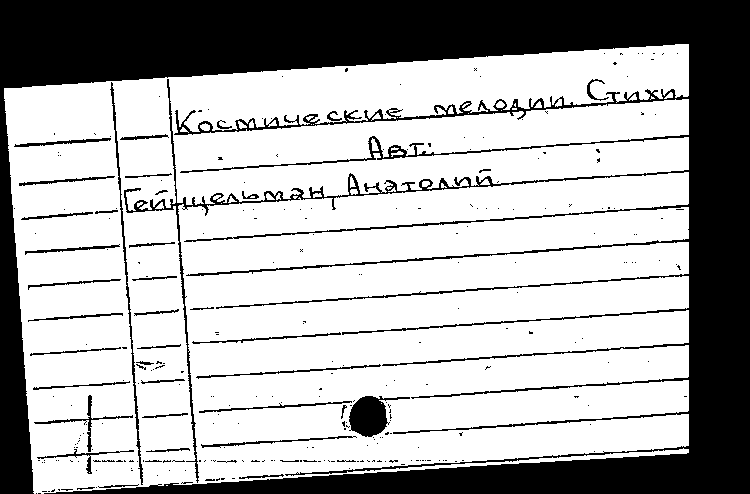 Космические мелодии. Стихи.
Авт.:
Гейнцельман, Анатолий